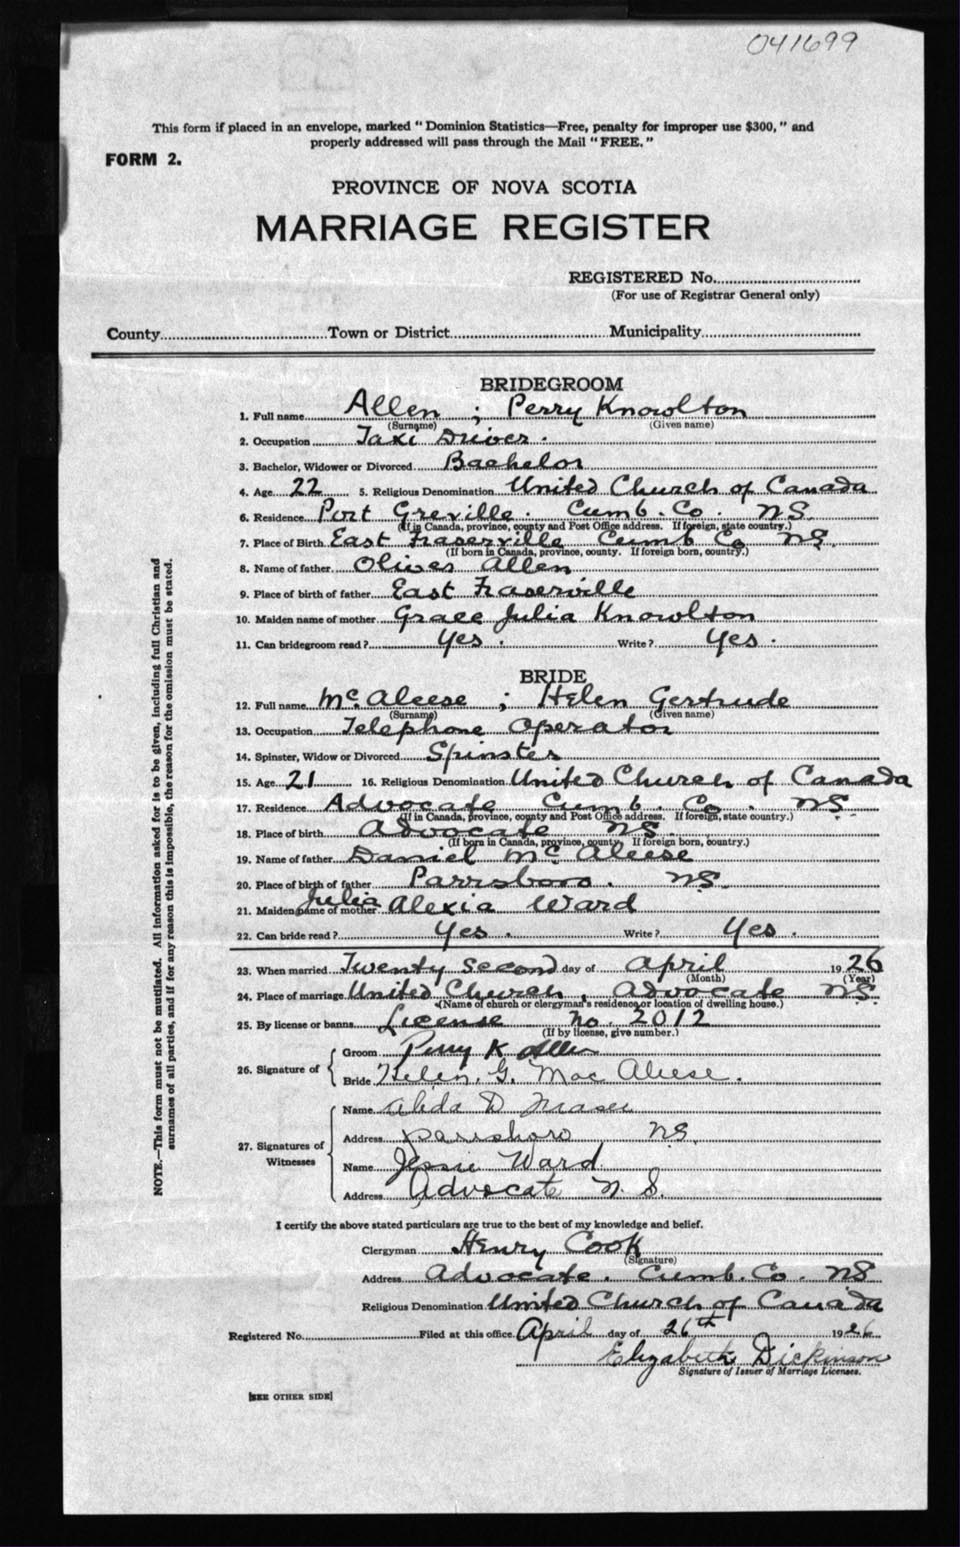 041699
This form if placed in an envelope, marked "Dominion Statistics—Free, penalty for improper use $300," and
properly addressed will pass through the Mail "FREE."
FORM 2.
PROVINCE OF NOVA SCOTIA
MARRIAGE REGISTER
REGISTERED No.
(For use of Registrar General only)
County Town or District Municipality
BRIDEGROOM
1. Full name Allen ; Perry Knowlton
(Surname) (Given name)
2. Occupation Taxi Driver.
3. Bachelor, Widower or Divorced Bachelor
4. Age 22 5. Religious Denomination United Church of Canada
6. Residence Port Greville. Cumb. Co. NS.
(If in Canada, province, county and Post Office address. If foreign, state country.)
7. Place of Birth East Fraserville Cumb Co NS.
(If born in Canada, province, county. If foreign born, country.)
8. Name of father Oliver Allen
9. Place of birth of father East Fraserville
10. Maiden name of mother Grace Julia Knowlton
11. Can bridegroom read? Yes. Write? Yes.
BRIDE
12. Full name McAleese ; Helen Gertrude
(Surname) (Given name)
13. Occupation Telephone Operator
14. Spinster, Widow or Divorced Spinster
15. Age 21 16. Religious Denomination United Church of Canada
17. Residence Advocate Cumb. Co. NS.
(If in Canada, province, county and Post Office address. If foreign, state country.)
18. Place of birth Advocate NS.
(If born in Canada, province, county. If foreign born, country.)
19. Name of father Daniel McAleese
20. Place of birth of father Parrsboro. NS.
21. Maiden name of mother Julia Alexia Ward
22. Can bride read? Yes. Write? Yes.
23. When married Twenty Second day of April 1926
(Month) (Year)
24. Place of marriage United Church, Advocate NS.
(Name of church or clergyman's residence or location of dwelling house.)
25. By license or banns License No. 2012
(If by license, give number.)
26. Signature of
Groom Perry K Allen
Bride Helen. G. MacAleese.
27. Signatures of Witnesses
Name D Fraser
Address Parrsboro NS.
Name Jessie Ward
Address Advocate N. S.
I certify the above stated particulars are true to the best of my knowledge and belief.
Clergyman Henry Cook
(Signature)
Address Advocate. Cumb. Co. NS
Religious Denomination United Church of Canada
Registered No. Filed at this office April day of 26th 1926
Elizabeth Dickinson
Signature of Issuer of Marriage Licenses.
[SEE OTHER SIDE]
NOTE.—This form must not be mutilated. All information asked for is to be given, including full Christian and
surnames of all parties, and if for any reason this is impossible, the reason for the omission must be stated.